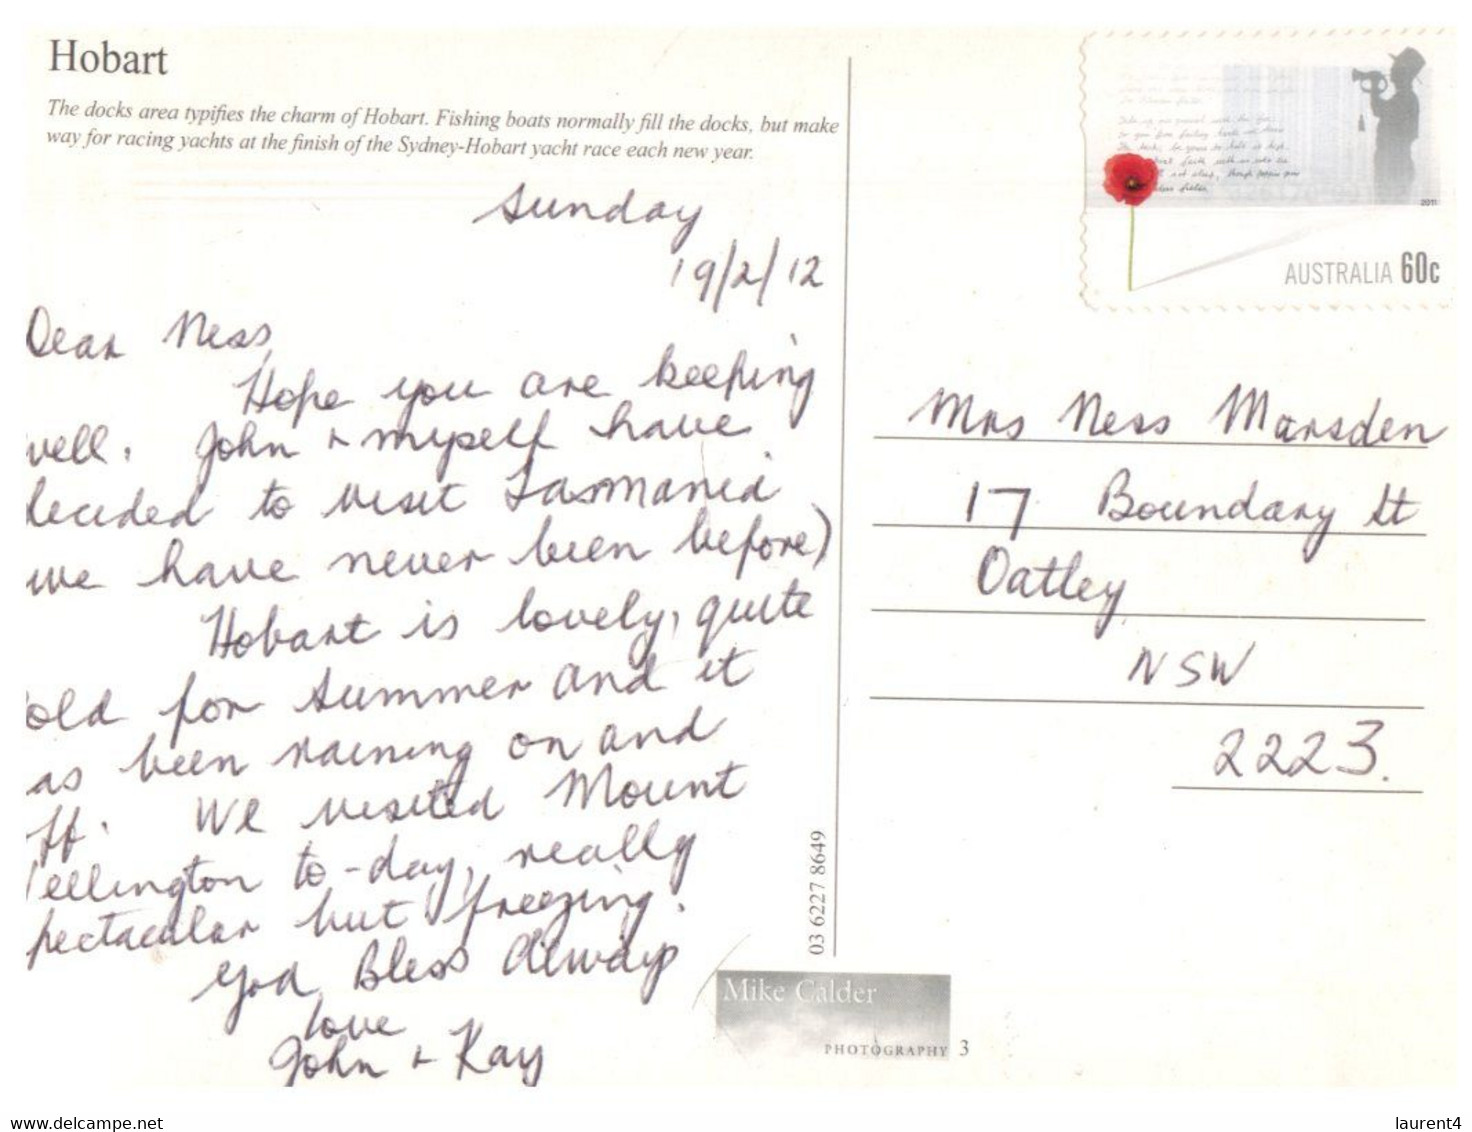 Hobart
The docks area typifies the charm of Hobart. Fishing boats normally fill the docks, but make
way for racing yachts at the finish of the Sydney-Hobart yacht race each new year.
Sunday
19/2/12
Dear Ness,
Hope you are keeping
well. John + myself have
decided to visit Tasmania
we have never been before)
Hobart is lovely, quite
old for summer and it
as been raining on and
ff. We visited Mount
ellington to-day, really
pectacular but freezing.
God Bless Always
love
John + Kay
2011
AUSTRALIA 60c
Mrs Ness Marsden
17 Boundary St
Oatley
NSW
2223.
03 6227 8649
Mike Calder
PHOTOGRAPHY 3
www.delcampe.net
laurent4